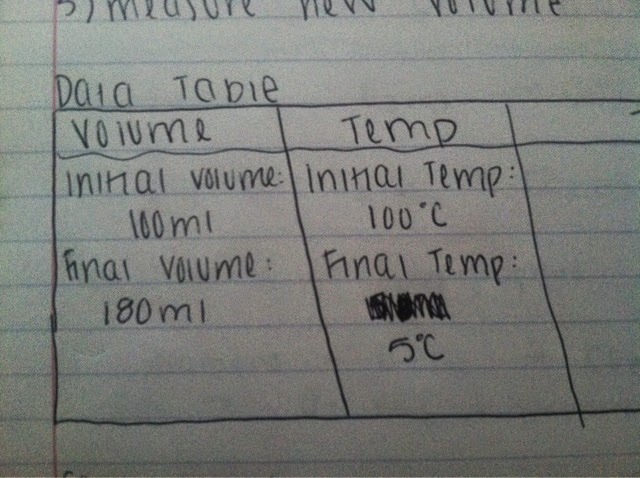 3) measure new volume
Data Table
Volume Temp
Initial volume: Initial Temp:
100ml 100°C
Final Volume: Final Temp:
180ml
5°C